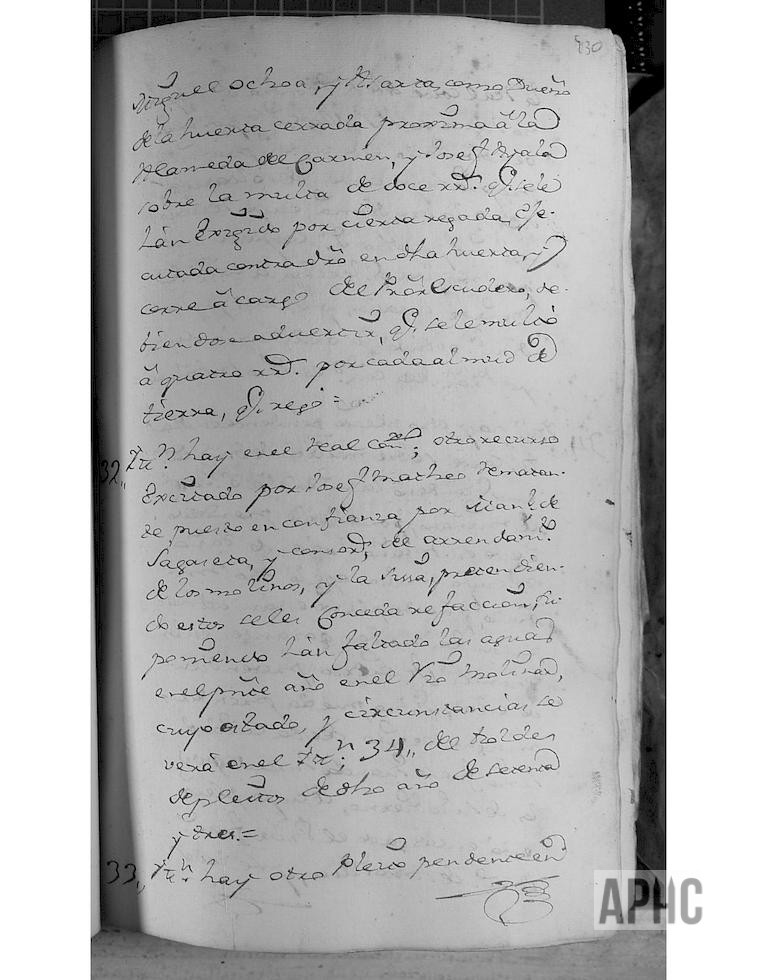 430
Miguel Ochoa, y Marta, como Dueño
de la huerta cerrada proxima â la
Alameda del Carmen, y Josef Ayala
sobre la multa de doce rr.ˢ q.ᵉ se le
hán Exigido por cierta regada, Eje-
cutada contra dr̃o en dha huerta, y
corre â cargo del Prõr Escudero, de-
biendose advertir, q.ᵉ se le multó
â quatro rr.ˢ por cada almud de
tierra, q.ᵉ regó =
32,, Ytt.ⁿ hay en el Real Con.ᵒ; otro recurso
Excitado por Josef Matheo Rematan-
te puesto en confianza por
Sagaseta, y consor.ˢ, de arrendam.ᵗᵒ
de los molinos, y la sisa, pretendien-
do estos se les Conceda refaccion, su-
poniendo hán faltado las aguas
en el pñte año en el Rio Molinar,
cuyo estado, y circunstancias se
verá en el Ytt.ⁿ 34,, del Rolde
de pleitos de dho año de setenta
y tres. =
33,, Ytt.ⁿ hay otro Pleito pendente en
APHC